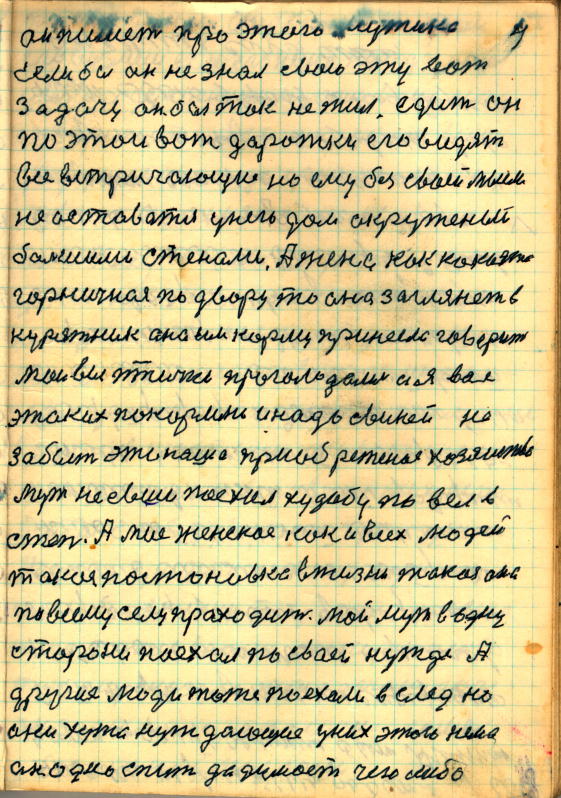 он пишет про этого мужика 4
Если бы он не знал свою эту вот
задачу он бы так не жил. едит он
по этои вот дарожки его видят
все встричающие но ему без своей мыли
не оставатся у него дом окруженый
бальшими стенами. А жена как какаято
горничная по двору то она заглянет в
курятник она им корму принесла говорит
мои вы птички проголодались а я вас
этаких покормлю и надо свиней не
забыт это наше приобретеное хозяиство
муж на свои поехал худобу по вел в
степ. А мое женское как и всех людей
такая постоновка в жизни такая она
по всему селу праходит. мой муж в одну
сторону поехал по своей нужде А
другие люди тоже поехали в след но
они хужи нуждающие у них этого нема
он одно спит да думает чего либо